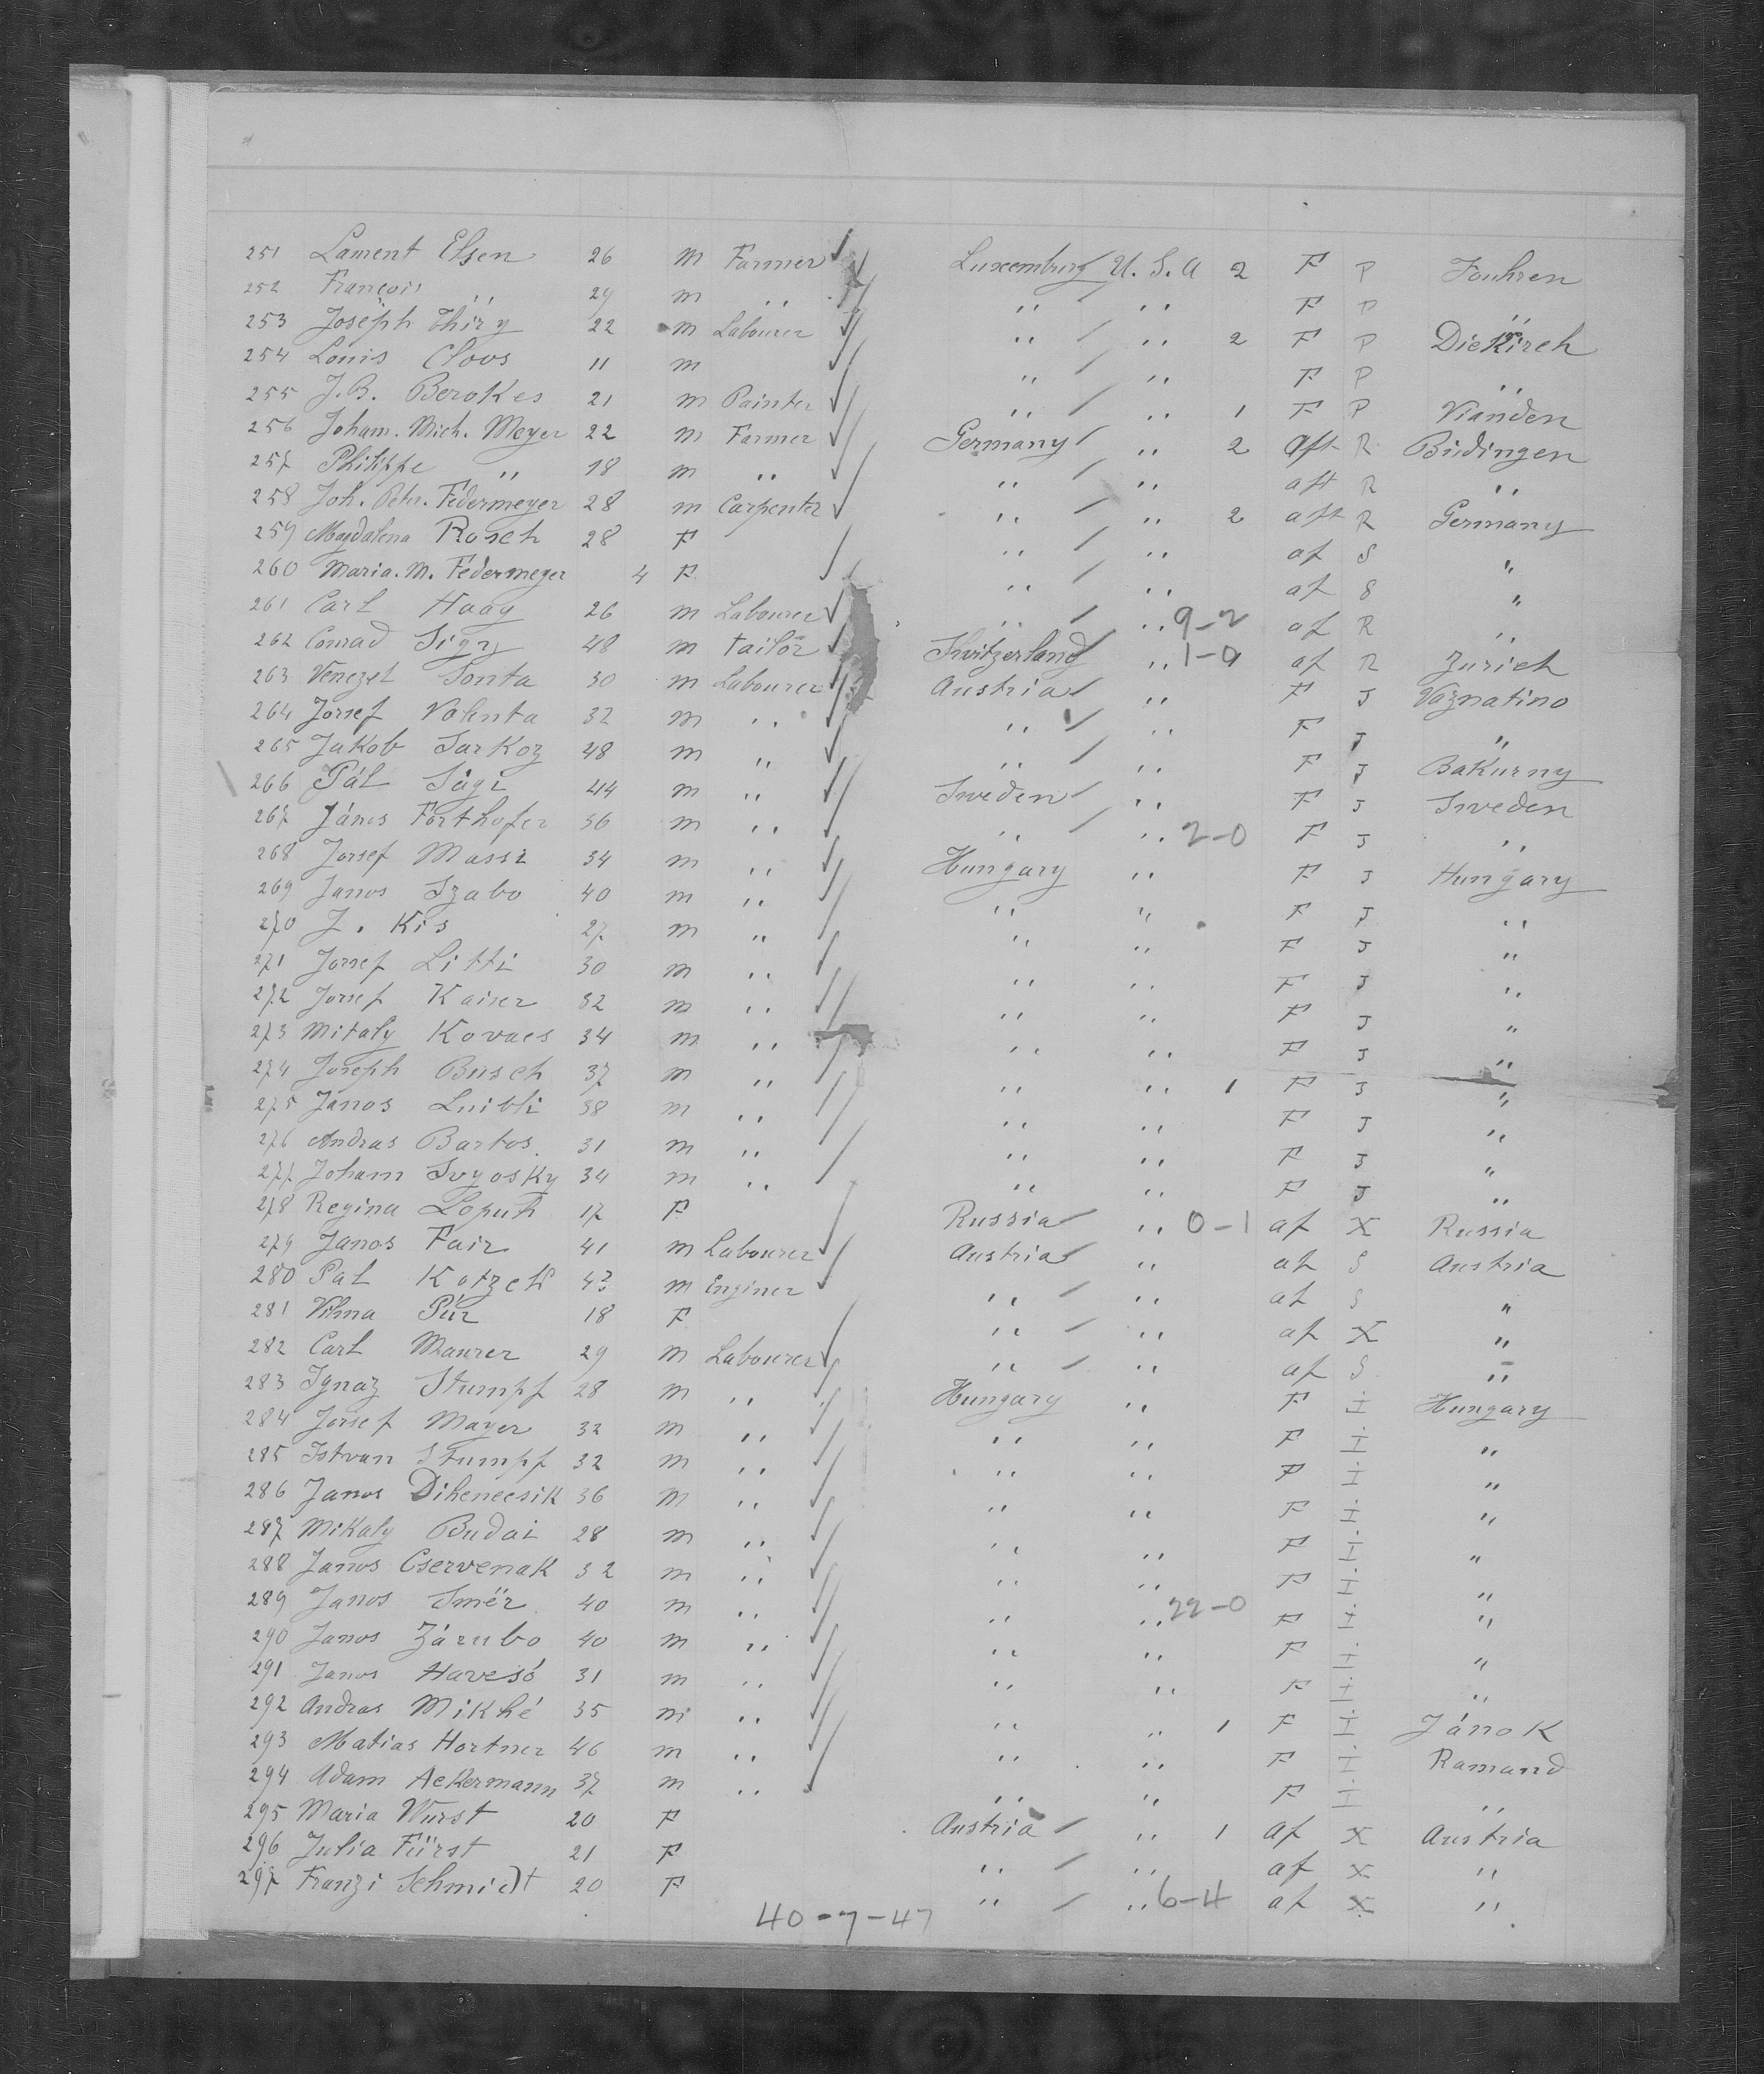 251 Lament Elsen 26 m Farmer Luxemburg U.S.A 2 F P Fouhren
252 François ,, 29 m ,, ,, ,, F P ,,
253 Joseph Thiry 22 m Labourer ,, ,, 2 F P Diekirch
254 Louis Cloos 11 m ,, ,, F P ,,
255 J.B. Berokes 21 m Painter ,, ,, 1 F P Vianden
256 Joham. Mich. Meyer 22 m Farmer Germany ,, 2 aft R Büdingen
257 Philippe ,, 18 m ,, ,, ,, aft R ,,
258 Joh. Petr. Federmeyer 28 m Carpenter ,, ,, 2 aft R Germany
259 Magdalena Rosch 28 F ,, ,, af S ,,
260 Maria. M. Federmeyer 4 F ,, ,, af S ,,
261 Carl Haag 26 m Labourer ,, ,, 9-2 af R ,,
262 Conrad Sigg 48 m tailor Switzerland ,, 1-0 af R Zurich
263 Venezel Sonta 30 m Labourer Austria ,, F J Voznatino
264 Jossef Vohnta 32 m ,, ,, ,, F J ,,
265 Jakob Sarkoz 48 m ,, ,, ,, F J Bakurny
266 Pál Sági 44 m ,, Sweden ,, F J Sweden
267 János Forthofer 36 m ,, ,, ,, 2-0 F J ,,
268 Jossef Massi 34 m ,, Hungary ,, F J Hungary
269 Janos Szabo 40 m ,, ,, ,, F J ,,
270 J. Kis 27 m ,, ,, ,, F J ,,
271 Jossef Litti 30 m ,, ,, ,, F J ,,
272 Jossef Kaiser 32 m ,, ,, ,, F J ,,
273 Mitaly Kovacs 34 m ,, ,, ,, F J ,,
274 Joseph Busch 37 m ,, ,, ,, 1 F J ,,
275 Janos Luibli 38 m ,, ,, ,, F J ,,
276 Andras Bartos. 31 m ,, ,, ,, F J ,,
277 Joham Svyosky 34 m ,, ,, ,, F J ,,
278 Regina Loputi 17 F Russia ,, 0-1 af X Russia
279 Janos Fair 41 m Labourer Austria ,, af S Austria
280 Pal Kotzek 43 m Enginer ,, ,, af S ,,
281 Vilma Pür 18 F ,, ,, af X ,,
282 Carl Maurer 29 m Labourer ,, ,, af S ,,
283 Ignaz Stumpf 28 m ,, Hungary ,, F I Hungary
284 Jossef Mayer 32 m ,, ,, ,, F I ,,
285 Istvan Stumpf 32 m ,, ,, ,, F I ,,
286 Janos Dihenecsik 36 m ,, ,, ,, F I ,,
287 Mikaly Budai 28 m ,, ,, ,, F I ,,
288 Janos Cservenak 32 m ,, ,, ,, F I ,,
289 Janos Smër 40 m ,, ,, ,, 22-0 F I ,,
290 Janos Zárubo 40 m ,, ,, ,, F I ,,
291 Janos Havesó 31 m ,, ,, ,, F I ,,
292 Andras Mikhé 35 m ,, ,, ,, 1 F I Jánok
293 Matias Hortner 46 m ,, ,, ,, F I Ramand
294 Adam Ackermann 37 m ,, ,, ,, F I ,,
295 Maria Wurst 20 F Austria ,, 1 af X Austria
296 Julia Fürst 21 F ,, ,, af X ,,
297 Franzi Schmidt 20 F ,, ,, 6-4 af X ,,
40-7-47